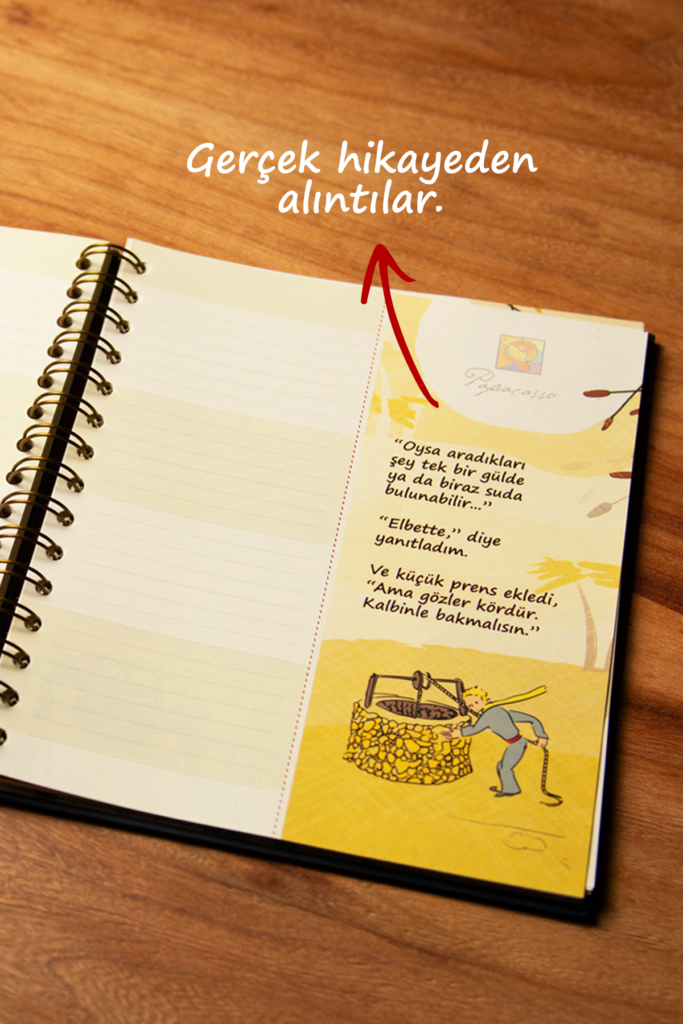 Gerçek hikayeden
alıntılar.
Papacasso
“Oysa aradıkları
şey tek bir gülde
ya da biraz suda
bulunabilir...”
“Elbette,” diye
yanıtladım.
Ve küçük prens ekledi,
“Ama gözler kördür.
Kalbinle bakmalısın.”